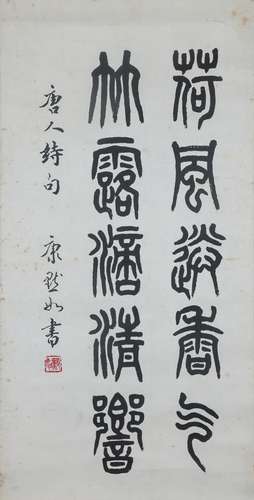 荷風送香气
竹露滴清響
唐人詩句 康默如書